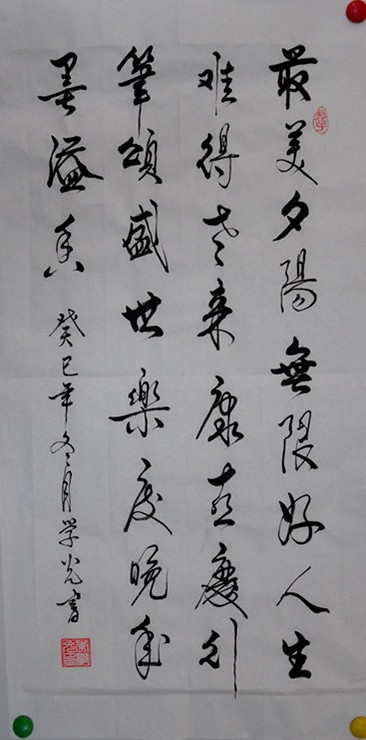 最美夕陽無限好人生
难得老来康慶引
筆頌盛世樂度晚年
墨溢香
癸巳年冬月学光書